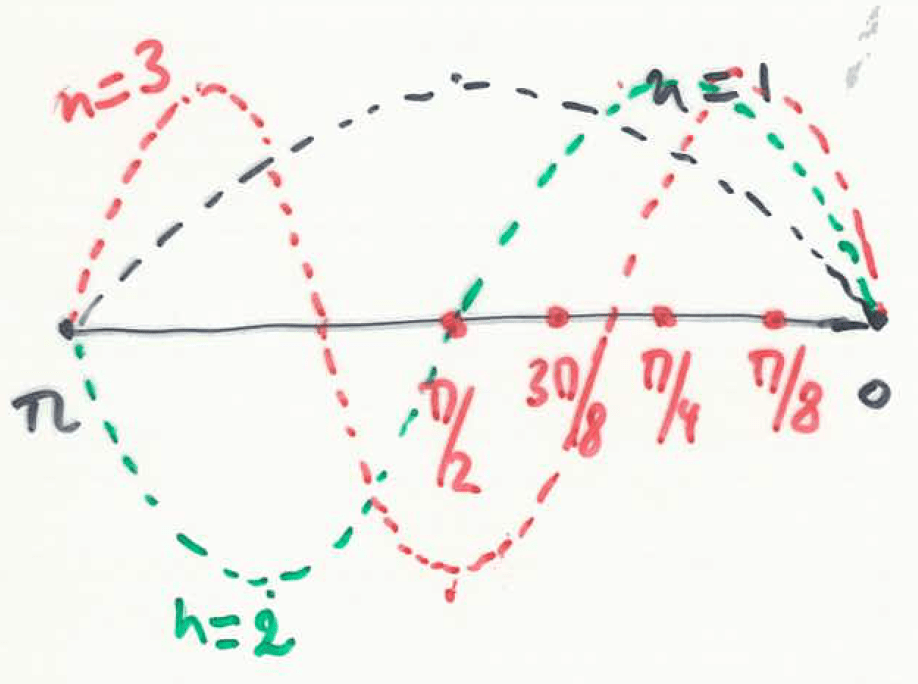 n=3
n=1
π
π/2
3π/8
π/4
π/8
0
n=2